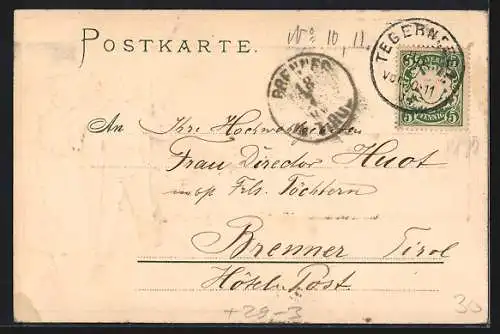 No 10, 11.
POSTKARTE.
TEGERNSEE
5 5
PFENNIG
BRENNER
18
An Ihre Hochwohlgeboren
Frau Director Huot
Frls. Töchtern
Brenner Tirol
Hôtel Post
+29-3
30